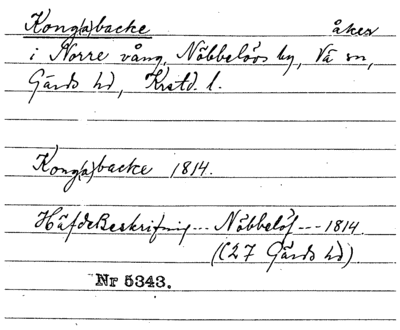 Kong(a)backe åker
i Norre vång, Nöbbelövs by, Vä sn,
Gärds hd, Krstd. l.
Kong(a)backe 1814.
HäfdeBeskrifning --- Nöbbelöf --- 1814
(C27 Gärds hd)
Nr 5343.